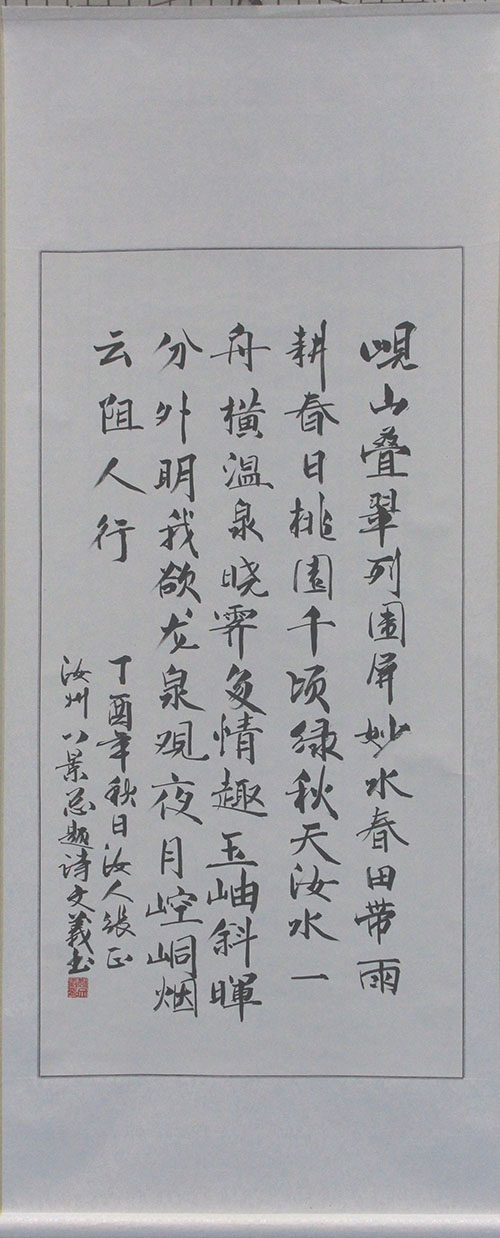 岘山叠翠列围屏妙水春田带雨
耕春日桃园千顷绿秋天汝水一
舟横温泉晓霁多情趣玉岫斜晖
分外明我欲龙泉观夜月崆峒烟
云阻人行
丁酉年秋日汝人张正
汝州八景总题诗文义书